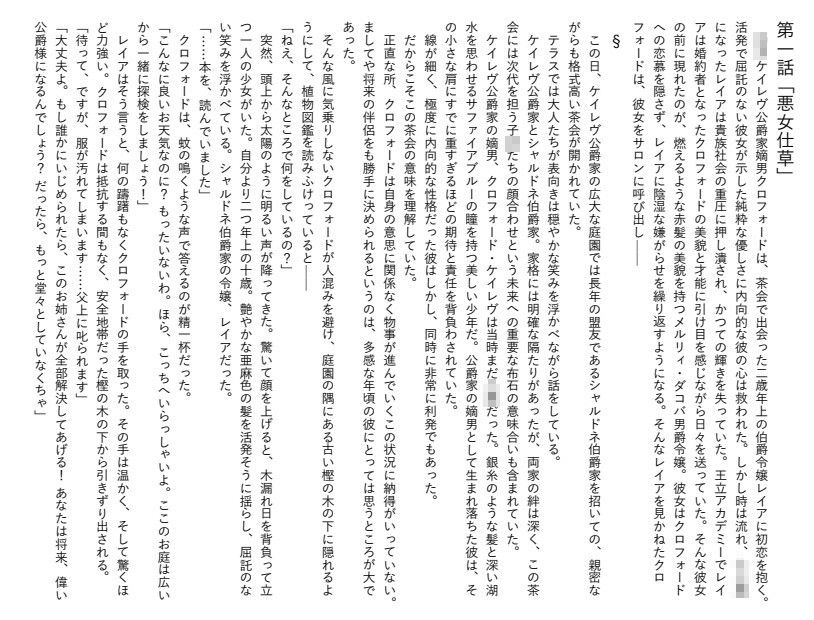 第一話「悪女仕草」
ケイレヴ公爵家嫡男クロフォードは、茶会で出会った二歳年上の伯爵令嬢レイアに初恋を抱く。
活発で屈託のない彼女が示した純粋な優しさに内向的な彼の心は救われた。しかし時は流れ、
になったレイアは貴族社会の重圧に押し潰され、かつての輝きを失っていた。王立アカデミーでレイ
アは婚約者となったクロフォードの美貌と才能に引け目を感じながら日々を送っていた。そんな彼女
の前に現れたのが、燃えるような赤髪の美貌を持つメルリィ・ダコバ男爵令嬢。彼女はクロフォード
への恋慕を隠さず、レイアに陰湿な嫌がらせを繰り返すようになる。そんなレイアを見かねたクロ
フォードは、彼女をサロンに呼び出し――
§
この日、ケイレヴ公爵家の広大な庭園では長年の盟友であるシャルドネ伯爵家を招いての、親密な
がらも格式高い茶会が開かれていた。
テラスでは大人たちが表向きは穏やかな笑みを浮かべながら話をしている。
ケイレヴ公爵家とシャルドネ伯爵家。家格には明確な隔たりがあったが、両家の絆は深く、この茶
会には次代を担う子たちの顔合わせという未来への重要な布石の意味合いも含まれていた。
ケイレヴ公爵家の嫡男、クロフォード・ケイレヴは当時まだだった。銀糸のような髪と深い湖
水を思わせるサファイアブルーの瞳を持つ美しい少年だ。公爵家の嫡男として生まれ落ちた彼は、そ
の小さな肩にすでに重すぎるほどの期待と責任を背負わされていた。
線が細く、極度に内向的な性格だった彼はしかし、同時に非常に利発でもあった。
だからこそこの茶会の意味を理解していた。
正直な所、クロフォードは自身の意思に関係なく物事が進んでいくこの状況に納得がいっていない。
ましてや将来の伴侶をも勝手に決められるというのは、多感な年頃の彼にとっては思うところが大で
あった。
そんな風に気乗りしないクロフォードが人混みを避け、庭園の隅にある古い樫の木の下に隠れるよ
うにして、植物図鑑を読みふけっていると――
「ねえ、そんなところで何をしているの?」
突然、頭上から太陽のように明るい声が降ってきた。驚いて顔を上げると、木漏れ日を背負って立
つ一人の少女がいた。自分より二つ年上の十歳。艶やかな亜麻色の髪を活発そうに揺らし、屈託のな
い笑みを浮かべている。シャルドネ伯爵家の令嬢、レイアだった。
「……本を、読んでいました」
クロフォードは、蚊の鳴くような声で答えるのが精一杯だった。
「こんなに良いお天気なのに? もったいないわ。ほら、こっちへいらっしゃいよ。ここのお庭は広い
から一緒に探検をしましょう!」
レイアはそう言うと、何の躊躇もなくクロフォードの手を取った。その手は温かく、そして驚くほ
ど力強い。クロフォードは抵抗する間もなく、安全地帯だった樫の木の下から引きずり出される。
「待って、ですが、服が汚れてしまいます……父上に叱られます」
「大丈夫よ。もし誰かにいじめられたら、このお姉さんが全部解決してあげる! あなたは将来、偉い
公爵様になるんでしょう? だったら、もっと堂々としていなくちゃ」